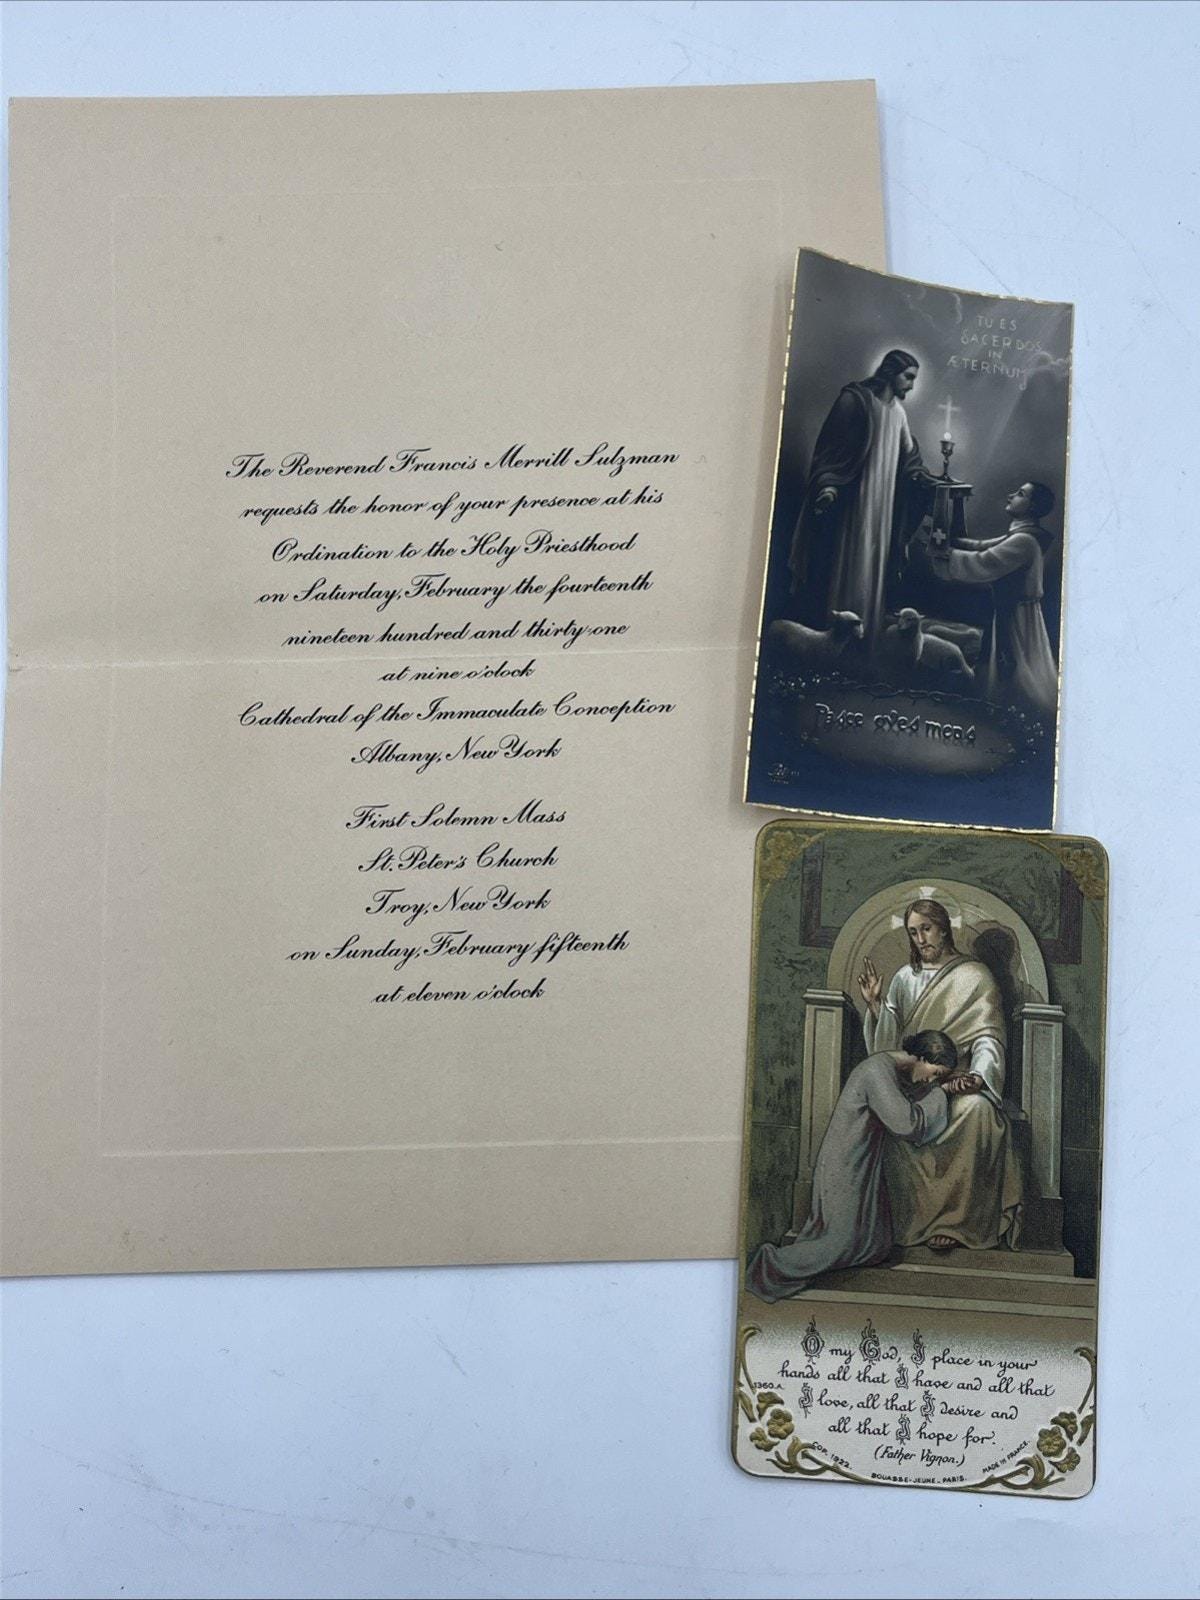 The Reverend Francis Merrill Sulzman
requests the honor of your presence at his
Ordination to the Holy Priesthood
on Saturday, February the fourteenth
nineteen hundred and thirty-one
at nine o'clock
Cathedral of the Immaculate Conception
Albany, New York
First Solemn Mass
St. Peter's Church
Troy, New York
on Sunday, February fifteenth
at eleven o'clock
TU ES
SACERDOS
IN
ÆTERNUM
Pasce oves meas
O my God, I place in your
hands all that I have and all that
I love, all that I desire and
all that I hope for.
(Father Vignon.)
1360.A.
COP. 1922.
BOUASSE-JEUNE_PARIS.
MADE IN FRANCE.